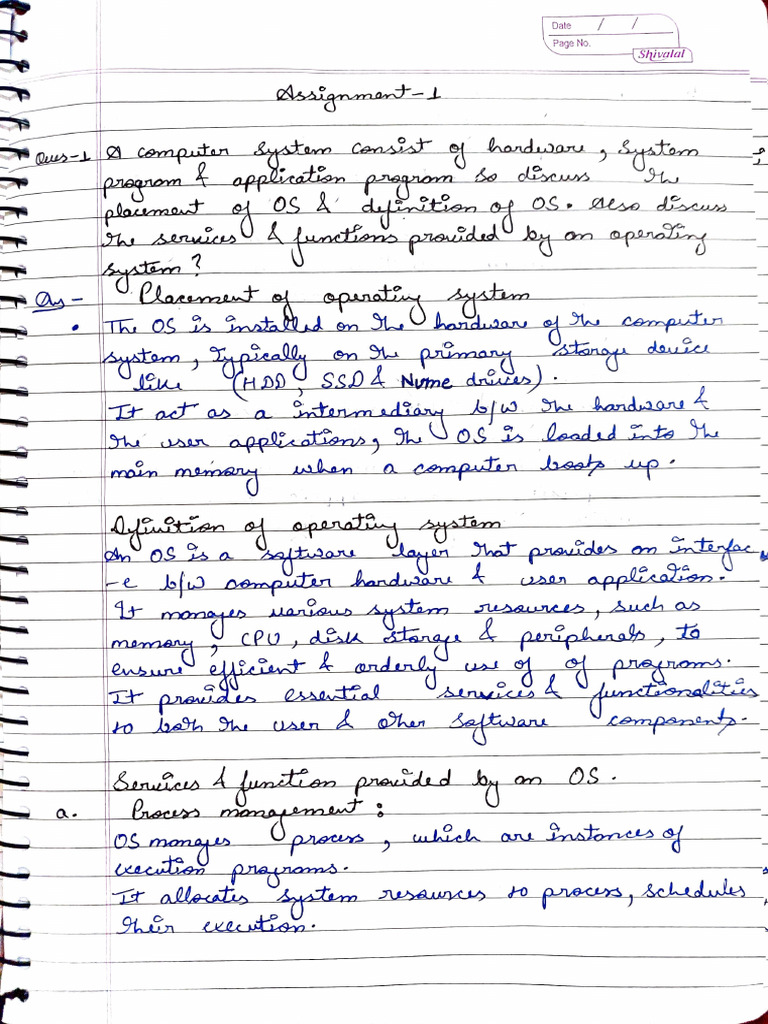 Date / /
Page No.
Shivalal
Assignment-1
Ques-1 A computer system consist of hardware, system
program & application program so discuss the
placement of OS & definition of OS. Also discuss
the services & functions provided by an operating
system?
Ans - Placement of operating system
• The OS is installed on the hardware of the computer
system, typically on the primary storage device
like (HDD, SSD & Nvme drives).
It act as a intermediary b/w the hardware &
the user applications, the OS is loaded into the
main memory when a computer boots up.
Definition of operating system
An OS is a software layer that provides an interfac
-e b/w computer hardware & user application.
It manages various system resources, such as
memory, CPU, disk storage & peripherals, to
ensure efficient & orderly use of of programs.
It provides essential services & functionalities
to both the user & other software components.
Services & function provided by an OS.
a. Process management :
OS manages process, which are instances of
execution programs.
It allocates system resources to process, schedules
their execution.